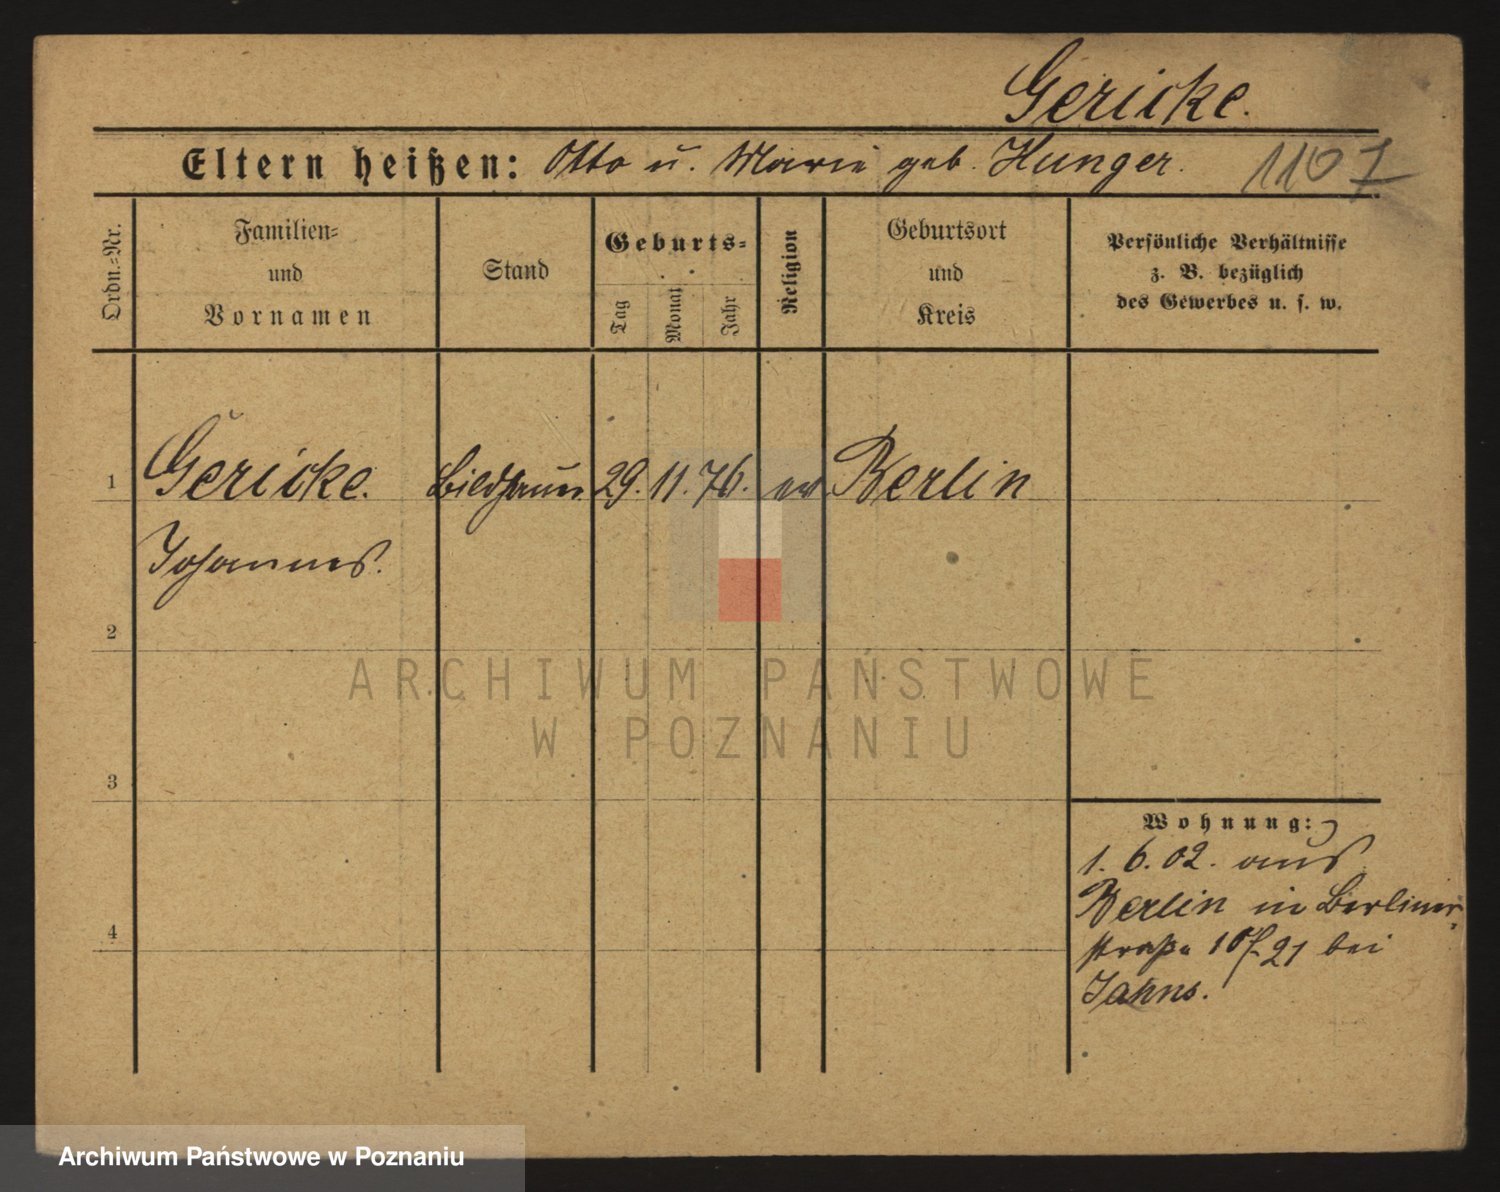 Gericke.
Eltern heißen: Otto u. Marie geb. Hunger. 1107
Ordn.=Nr.
Familien=
und
Vornamen
Stand
Geburts=
Tag
Monat
Jahr
Religion
Geburtsort
und
Kreis
Persönliche Verhältnisse
z. B. bezüglich
des Gewerbes u. s. w.
1 Gericke. Bildhauer 29. 11. 76. ev Berlin
Johannes.
2
3
4
Wohnung:
1. 6. 02. aus
Berlin in Berliner-
straße 21 bei
Jahns.
ARCHIWUM PAŃSTWOWE
W POZNANIU
Archiwum Państwowe w Poznaniu